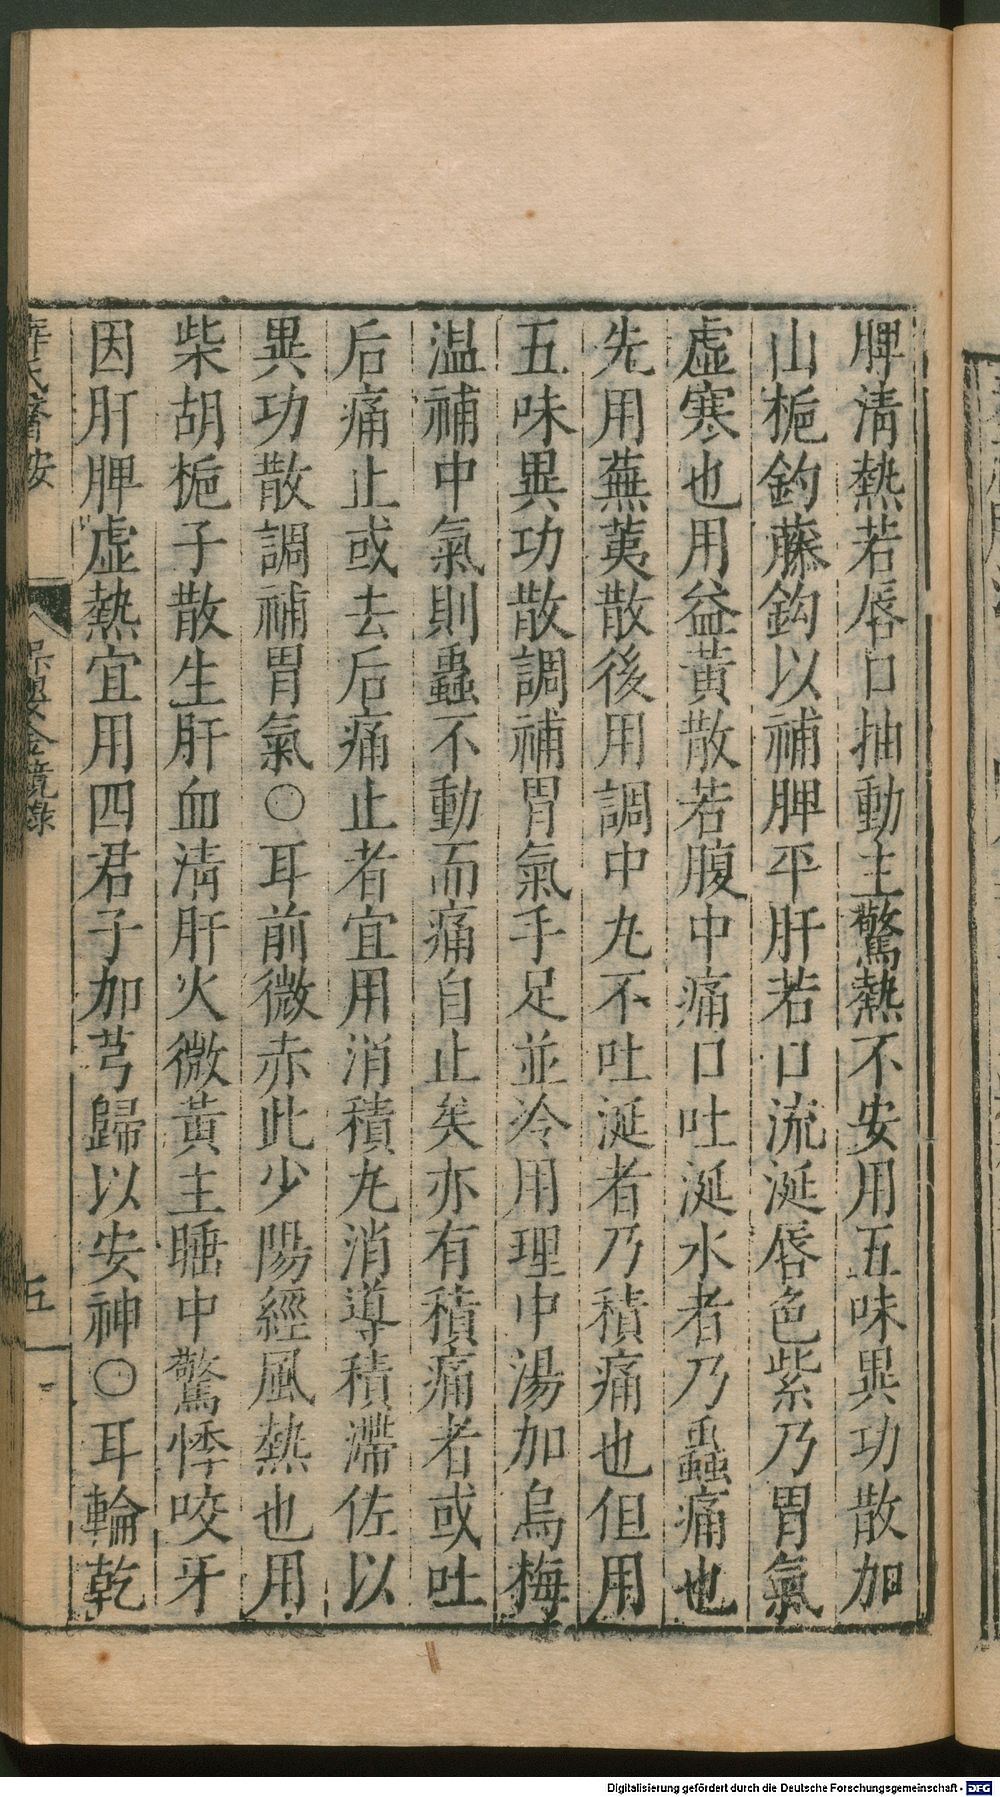 脾清熱若唇口抽動主驚熱不安用五味異功散加
山梔鈎藤鈎以補脾平肝若口流涎唇色紫乃胃氣
虛寒也用益黃散若腹中痛口吐涎水者乃蟲痛也
先用蕪荑散後用調中丸不吐涎者乃積痛也但用
五味異功散調補胃氣手足並冷用理中湯加烏梅
温補中氣則蟲不動而痛自止矣亦有積痛者或吐
后痛止或去后痛止者宜用消積丸消導積滯佐以
異功散調補胃氣○耳前微赤此少陽經風熱也用
柴胡梔子散生肝血清肝火微黃主睡中驚悸咬牙
因肝脾虛熱宜用四君子加芎歸以安神○耳輪乾
薛氏醫按
八
保嬰金鏡錄
五
Digitalisierung gefördert durch die Deutsche Forschungsgemeinschaft - DFG